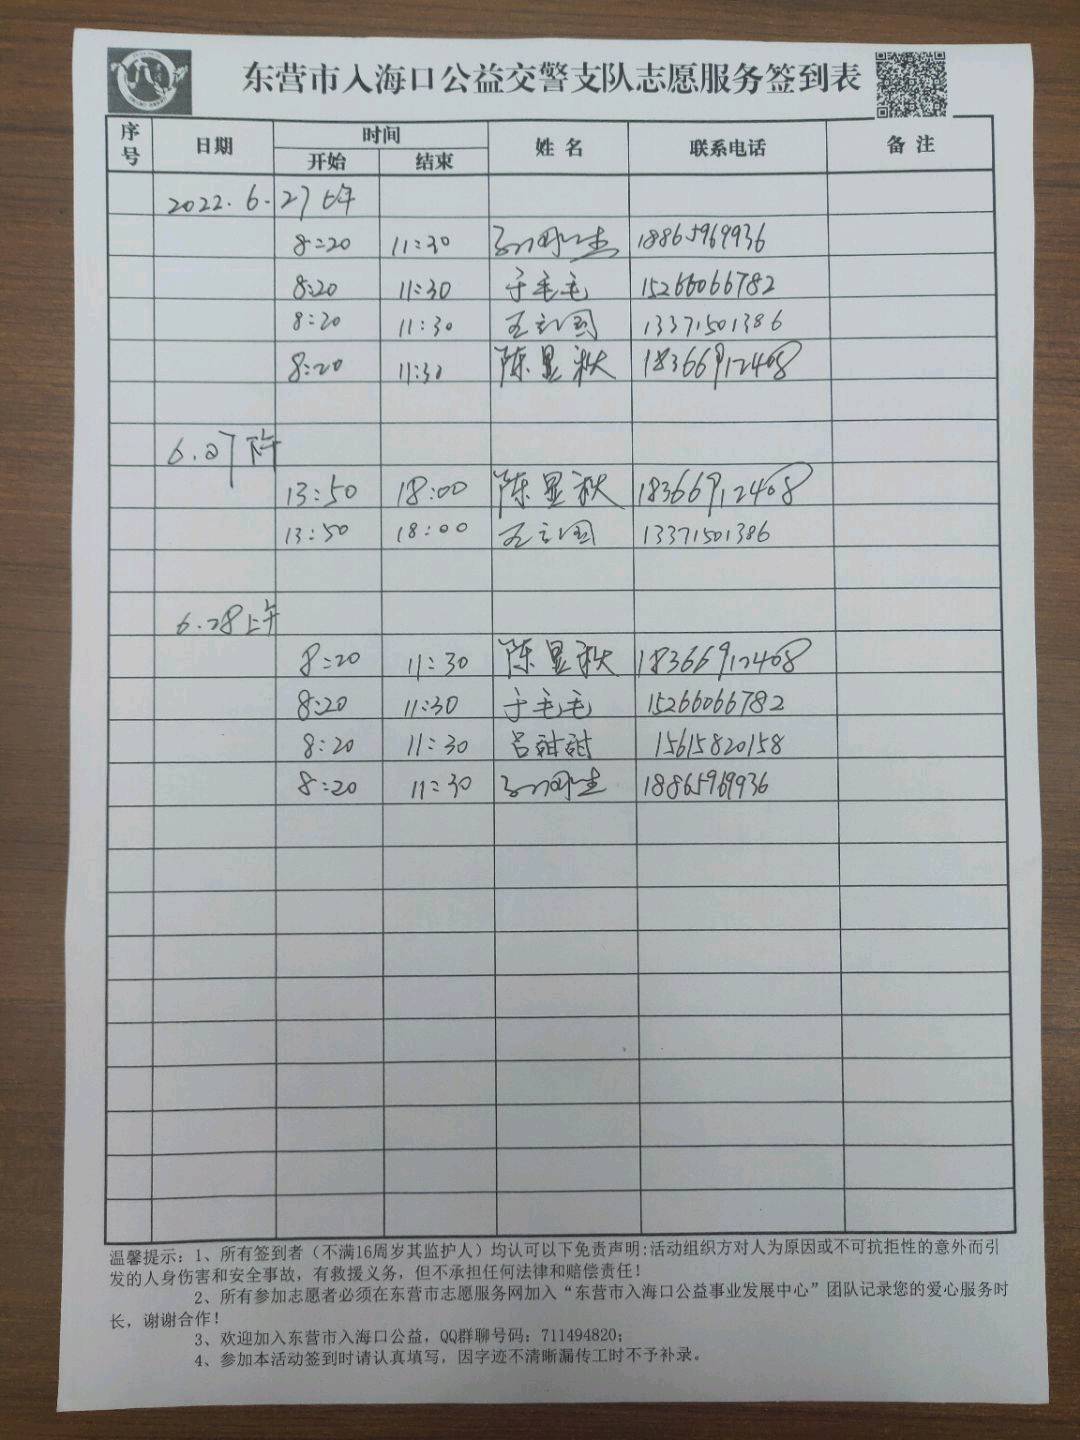 东营市入海口公益交警支队志愿服务签到表
序号 日期 时间 姓名 联系电话 备注
开始 结束
2022.6.27上午
8:20 11:30 18865969936
8:20 11:30 于毛毛 15266066782
8:20 11:30 王立国 13371501386
8:20 11:30 陈显秋 18366912408
6.27下午
13:50 18:00 陈显秋 18366912408
13:50 18:00 王立国 13371501386
6.28上午
8:20 11:30 陈显秋 18366912408
8:20 11:30 于毛毛 15266066782
8:20 11:30 吕甜甜 15615820158
8:20 11:30 18865969936
温馨提示：1、所有签到者（不满16周岁其监护人）均认可以下免责声明:活动组织方对人为原因或不可抗拒性的意外而引
发的人身伤害和安全事故，有救援义务，但不承担任何法律和赔偿责任！
2、所有参加志愿者必须在东营市志愿服务网加入“东营市入海口公益事业发展中心”团队记录您的爱心服务时
长，谢谢合作！
3、欢迎加入东营市入海口公益，QQ群聊号码：711494820；
4、参加本活动签到时请认真填写，因字迹不清晰漏传工时不予补录。